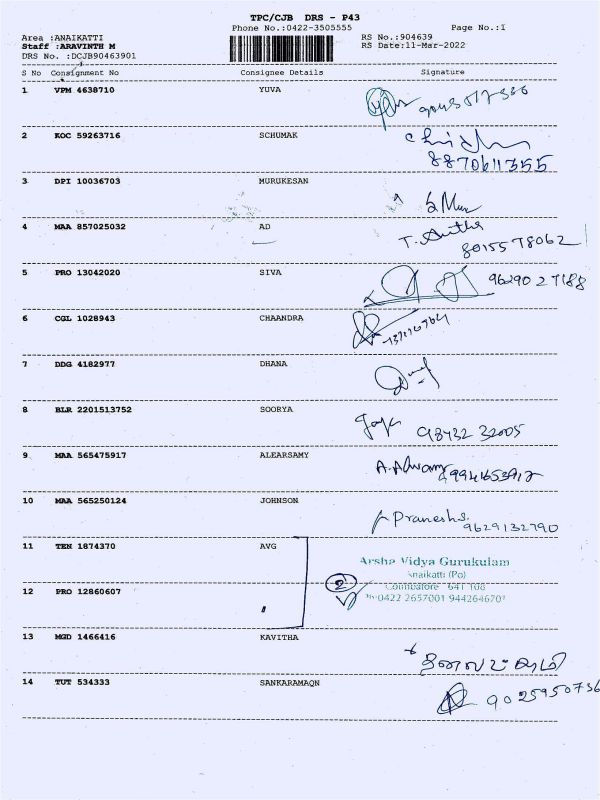 TPC/CJB DRS - P43
Phone No.:0422-3505555
Page No.:I
Area :ANAIKATTI
RS No.:904639
Staff :ARAVINTH M
RS Date:11-Mar-2022
DRS No. :DCJB90463901
S No Consignment No Consignee Details Signature
1 VPM 4638710 YUVA
2 KOC 59263716 SCHUMAK
8870611355
3 DPI 10036703 MURUKESAN
4 MAA 857025032 AD
T.
8015578062
5 PRO 13042020 SIVA
9629027188
6 CGL 1028943 CHAANDRA
7 DDG 4182977 DHANA
8 BLR 2201513752 SOORYA
98432 32005
9 MAA 565475917 ALEARSAMY
10 MAA 565250124 JOHNSON
Pranesh
9629132790
11 TEN 1874370 AVG
Arsha Vidya Gurukulam
Anaikatti (Po)
2
Coimbatore 641 108
12 PRO 12860607
Ph-0422 2657001 9442646701
13 MGD 1466416 KAVITHA
14 TUT 534333 SANKARAMAQN
9025950736